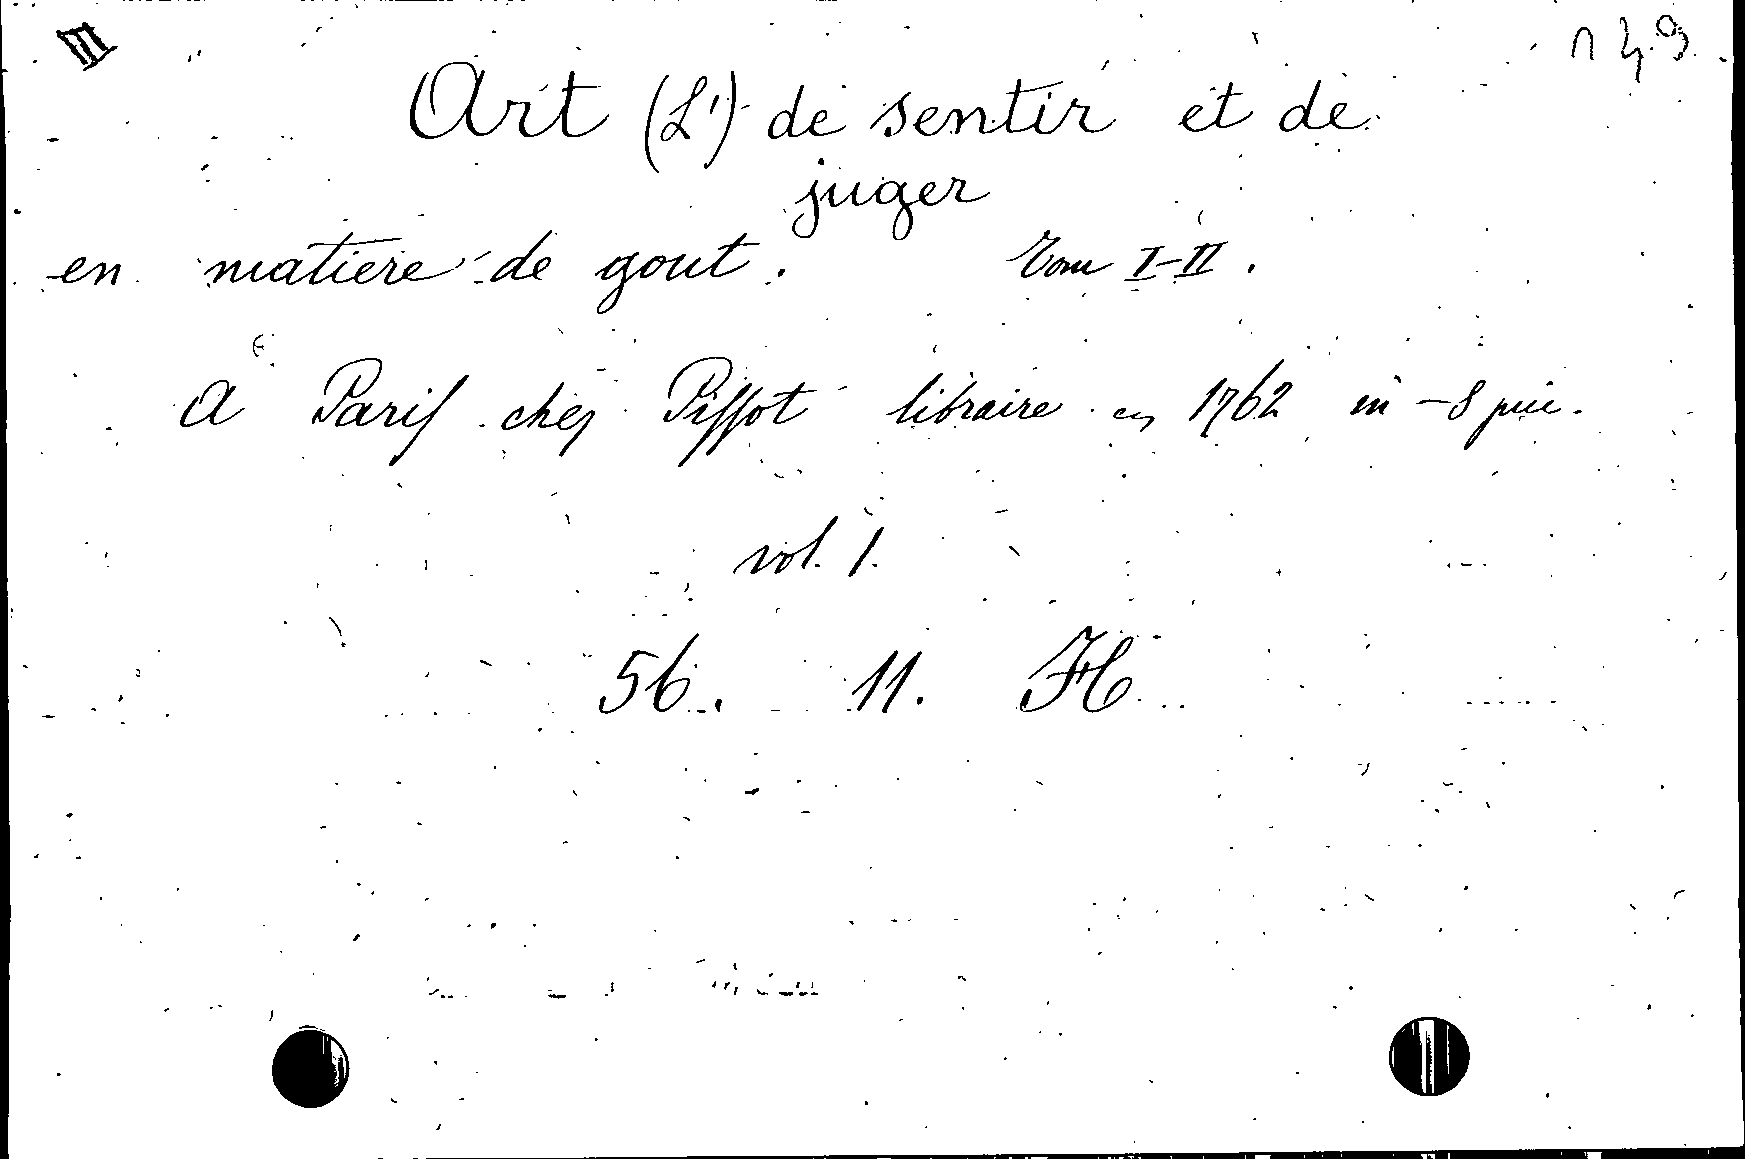 III
149.
Art (L') de sentir et de
juger
en matiere de gout. Tom I-II.
A Parif chez Piffot libraire en 1762 in-8 pic.
vol. 1.
56. 11. H